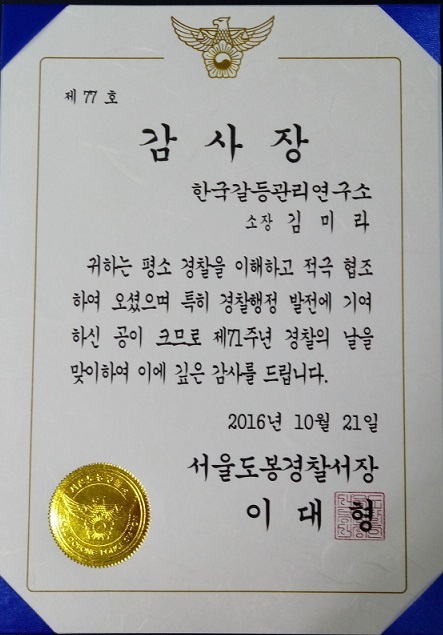 제 77 호
감 사 장
한국갈등관리연구소
소장 김 미 라
귀하는 평소 경찰을 이해하고 적극 협조
하여 오셨으며 특히 경찰행정 발전에 기여
하신 공이 크므로 제71주년 경찰의 날을
맞이하여 이에 깊은 감사를 드립니다.
2016년 10월 21일
서울도봉경찰서장
이 대 형